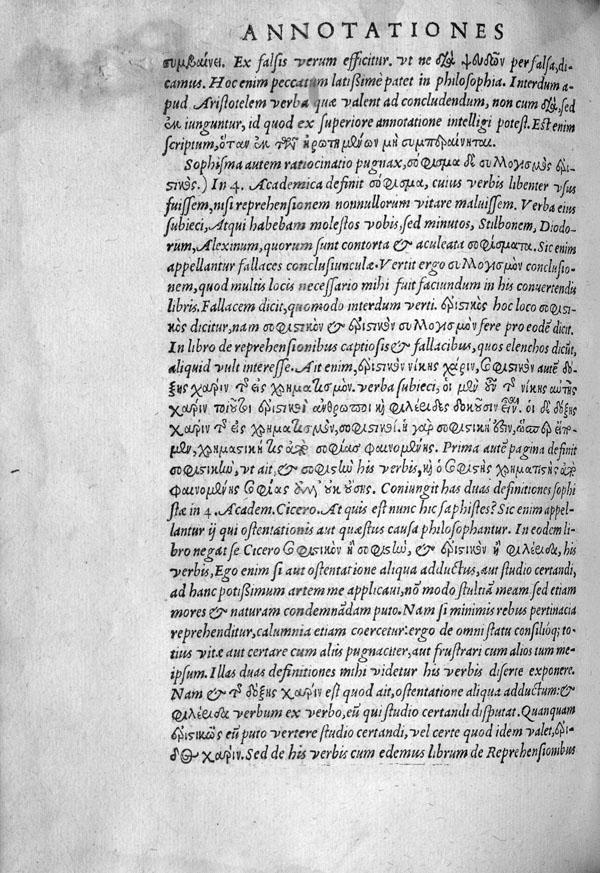 ANNOTATIONES
συμβαίνει. Ex falsis verum efficitur. vt ne διὰ ψευδῶν per falsa, di-
camus. Hoc enim peccatum latißimè patet in philosophia. Interdum a-
pud Aristotelem verba quæ valent ad concludendum, non cum διὰ, sed
ἐκ iunguntur, id quod ex superiore annotatione intelligi potest. Est enim
scriptum, ὅταν ἐκ τῶν ἠρωτημένων μὴ συμπεραίνηται.
Sophisma autem ratiocinatio pugnax, σόφισμα δὲ συλλογισμὸς ἐρι-
στικός.) In 4. Academica definit σόφισμα, cuius verbis libenter vsus
fuissem, nisi reprehensionem nonnullorum vitare maluissem. Verba eius
subieci, Atqui habebam molestos vobis, sed minutos, Stilbonem, Diodo-
rum, Alexinum, quorum sunt contorta & aculeata σοφίσματα. Sic enim
appellantur fallaces conclusiunculæ. Vertit ergo συλλογισμὸν conclusio-
nem, quod multis locis necessario mihi fuit faciundum in his conuertendis
libris. Fallacem dicit, quomodo interdum verti. ἐριστικὸς hoc loco σοφιστι-
κὸς dicitur, nam σοφιστικὸν & ἐριστικὸν συλλογισμὸν fere pro eodē dicit.
In libro de reprehensionibus captiosis & fallacibus, quos elenchos dicūt,
aliquid vult interesse. Ait enim, ἐριστικὸν νίκης χάριν, σοφιστικὸν autē δό-
ξης χάριν τῆς εἰς χρηματισμόν. verba subieci, οἱ μὲν οὖν τῆς νίκης αὐτῆς
χάριν τοιοῦτοι ἐριστικοὶ ἄνθρωποι κὴ φιλέριδες δοκοῦσιν εἶναι. οἱ δὲ δόξης
χάριν τῆς εἰς χρηματισμὸν, σοφιστικοί. ἡ γὰρ σοφιστικὴ ἐστιν, ὥσπερ εἴπο-
μεν, χρηματιστική τις ἀπὸ σοφίας φαινομένης. Prima autē pagina definit
σοφιστικὴν, vt ait, & σοφιστὴν his verbis, κὴ ὁ σοφιστὴς χρηματιστὴς ἀπὸ
φαινομένης σοφίας ἀλλ' οὐκ οὔσης. Coniungit has duas definitiones sophi
stæ in 4. Academ. Cicero. At quis est nunc hic saphistes? Sic enim appel-
lantur ij qui ostentationis aut quæstus causa philosophantur. In eodem li-
bro negat se Cicero σοφιστικὸν ἢ σοφιστὴν, & ἐριστικὸν ἢ φιλέριδα, his
verbis, Ego enim si aut ostentatione aliqua adductus, aut studio certandi,
ad hanc potißimum artem me applicaui, nō modo stultiā meam sed etiam
mores & naturam condemnādam puto. Nam si minimis rebus pertinacia
reprehenditur, calumnia etiam coercetur: ergo de omni statu consilióq; to-
tius vitæ aut certare cum aliis pugnaciter, aut frustrari cum alios tum me-
ipsum. Illas duas definitiones mihi videtur his verbis diserte exponere.
Nam & τῆς δόξης χάριν est quod ait, ostentatione aliqua adductum: &
φιλέριδα verbum ex verbo, eū qui studio certandi disputat. Quanquam
ἐριστικῶς eū puto vertere studio certandi, vel certe quod idem valet, ἔρι-
δος χάριν. Sed de his verbis cum edemus librum de Reprehensionibus